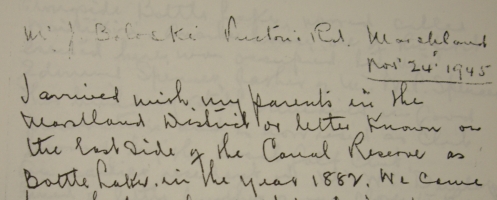 Mr J. Rd. Marshland
Nov 24 1945
I arrived with my parents in the
Marshland District or better known on
the East Side of the Canal Reserve as
Bottle Lake. in the year 1882. We came